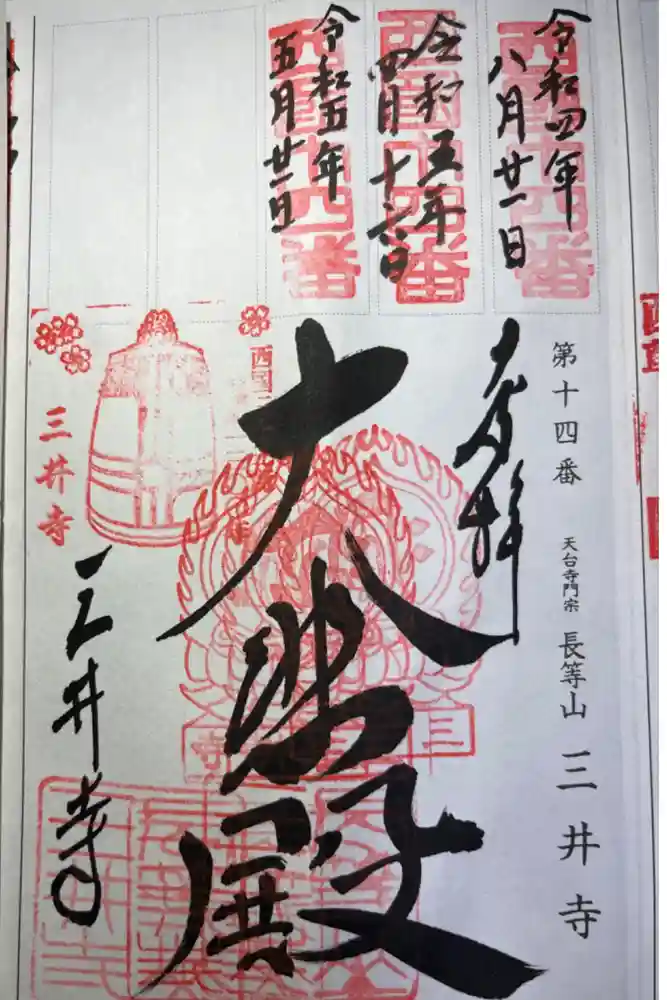 令和四年
八月廿一日
令和五年
四月十六日
令和五年
五月廿一日
西国十四番
西国十四番
西国十四番
第十四番
天台寺門宗
長等山
三井寺
奉拝
大悲殿
三井寺
三井寺